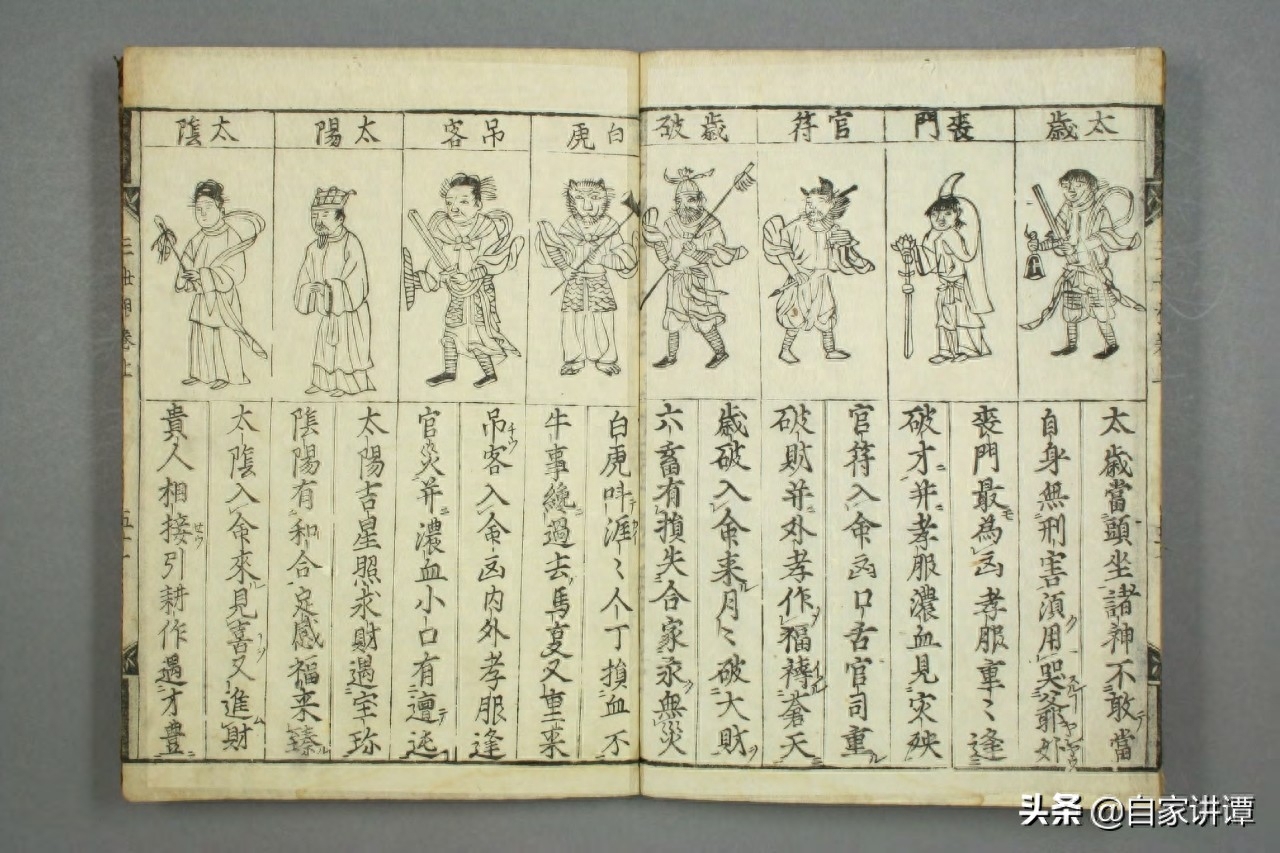 太歲
喪門
官符
歲破
白虎
吊客
太陽
太陰
太歲當頭坐諸神不敢當
自身無刑害須用哭爺
喪門最為凶孝服重〻逢
破才并孝服濃血見灾殃
官符入命凶口舌官司重
破財并外孝作福禱蒼天
歲破入命来月〻破大財
六畜有損失合家永無災
白虎涯〻人丁損血不
牛事纔過去馬又重来
吊客入命凶内外孝服逢
官災并濃血小口有邅迍
太陽吉星照求財遇宝珎
陰陽有和合定感福来臻
太陰入命來見喜又進財
貴人相接引耕作遇才豊
三世相卷上
头条 @自家讲谭